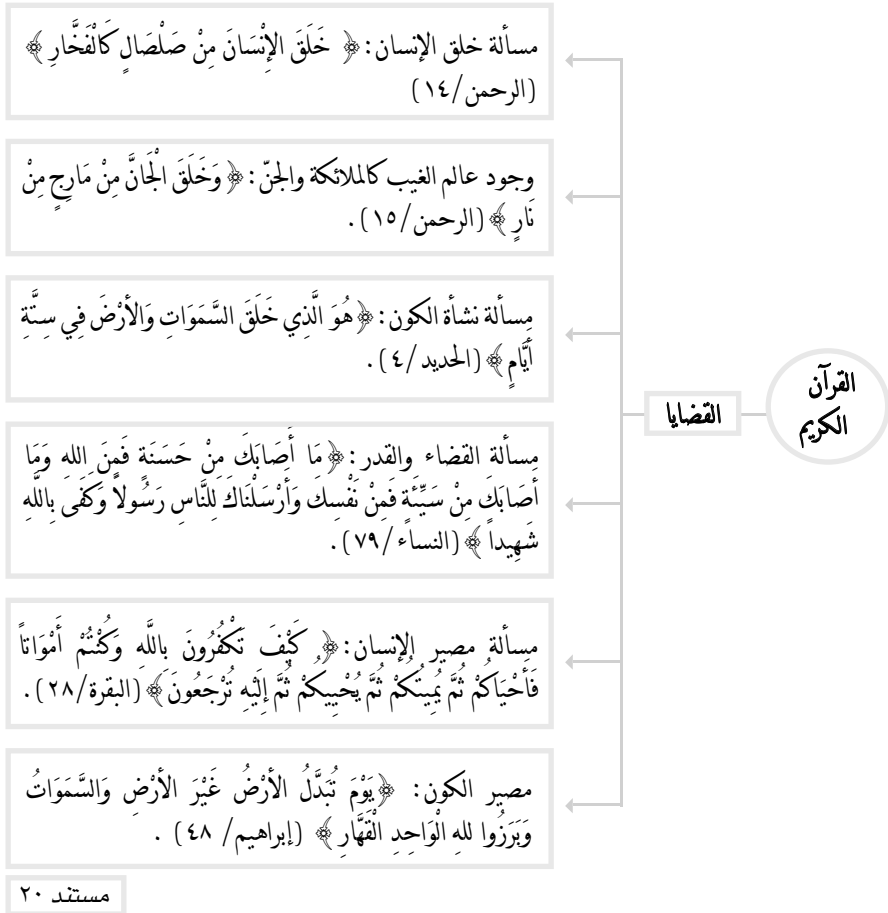 القرآن
الكريم
القضايا
مسألة خلق الإنسان: ﴿ خَلَقَ الإِنْسَانَ مِنْ صَلْصَالٍ كَالْفَخَّارِ ﴾
(الرحمن/١٤)
وجود عالم الغيب كالملائكة والجنّ: ﴿ وَخَلَقَ الْجَانَّ مِنْ مَارِجٍ مِنْ
نَارٍ ﴾ (الرحمن/١٥).
مسألة نشأة الكون: ﴿ هُوَ الَّذِي خَلَقَ السَّمَوَاتِ وَالأَرْضَ فِي سِتَّةِ
أَيَّامٍ ﴾ (الحديد/٤).
مسألة القضاء والقدر: ﴿ مَا أَصَابَكَ مِنْ حَسَنَةٍ فَمِنَ اللهِ وَمَا
أَصَابَكَ مِنْ سَيِّئَةٍ فَمِنْ نَفْسِكَ وَأَرْسَلْنَاكَ لِلنَّاسِ رَسُولاً وَكَفَى بِاللَّهِ
شَهِيداً ﴾ (النساء/٧٩).
مسألة مصير الإنسان: ﴿ كَيْفَ تَكْفُرُونَ بِاللَّهِ وَكُنْتُمْ أَمْوَاتاً
فَأَحْيَاكُمْ ثُمَّ يُمِيتُكُمْ ثُمَّ يُحْيِيكُمْ ثُمَّ إِلَيْهِ تُرْجَعُونَ ﴾ (البقرة/٢٨).
مصير الكون: ﴿ يَوْمَ تُبَدَّلُ الأَرْضُ غَيْرَ الأَرْضِ وَالسَّمَوَاتُ
وَبَرَزُوا للهِ الْوَاحِدِ الْقَهَّارِ ﴾ (إبراهيم/ ٤٨) .
مستند ٢٠